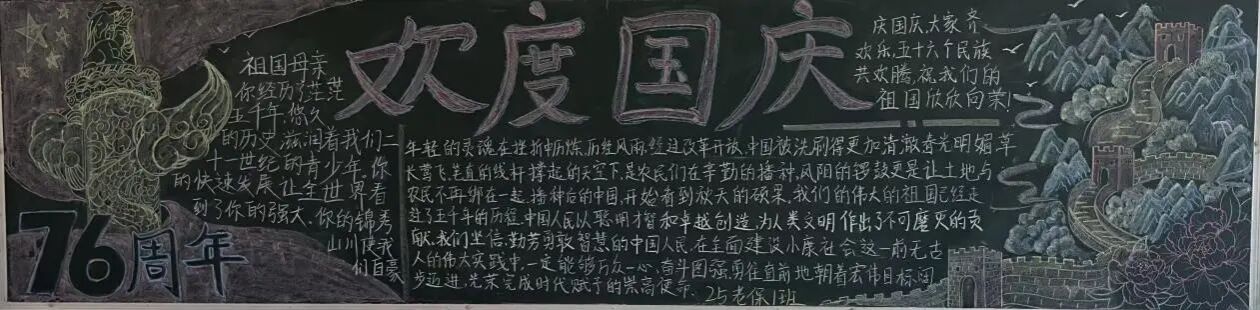 欢度国庆
祖国母亲
你经历了茫茫
五千年,悠久
的历史滋润着我们二
十一世纪的青少年,你
的快速发展让全世界看
到了你的强大,你的锦秀
山川使我
们自豪
76周年
年轻的灵魂在挫折中历炼,历经风雨,经过改革开放,中国被洗刷得更加清澈春光明媚草
长莺飞,笔直的线杆撑起的天空下,是农民们在辛勤的播种,凤阳的锣鼓更是让土地与
农民不再绑在一起,播种后的中国,开始看到秋天的硕果,我们的伟大的祖国已经走
过了五千年的历程,中国人民以聪明才智和卓越创造,为人类文明作出了不可磨灭的贡
献,我们坚信,勤劳勇敢智慧的中国人民,在全面建设小康社会这一前无古
人的伟大实践中,一定能够万众一心,奋斗图强勇往直前地朝着宏伟目标阔
步迈进,光荣完成时代赋予的崇高使命.
25老保1班
庆国庆,大家齐
欢乐,五十六个民族
共欢腾,祝我们的
祖国欣欣向荣!